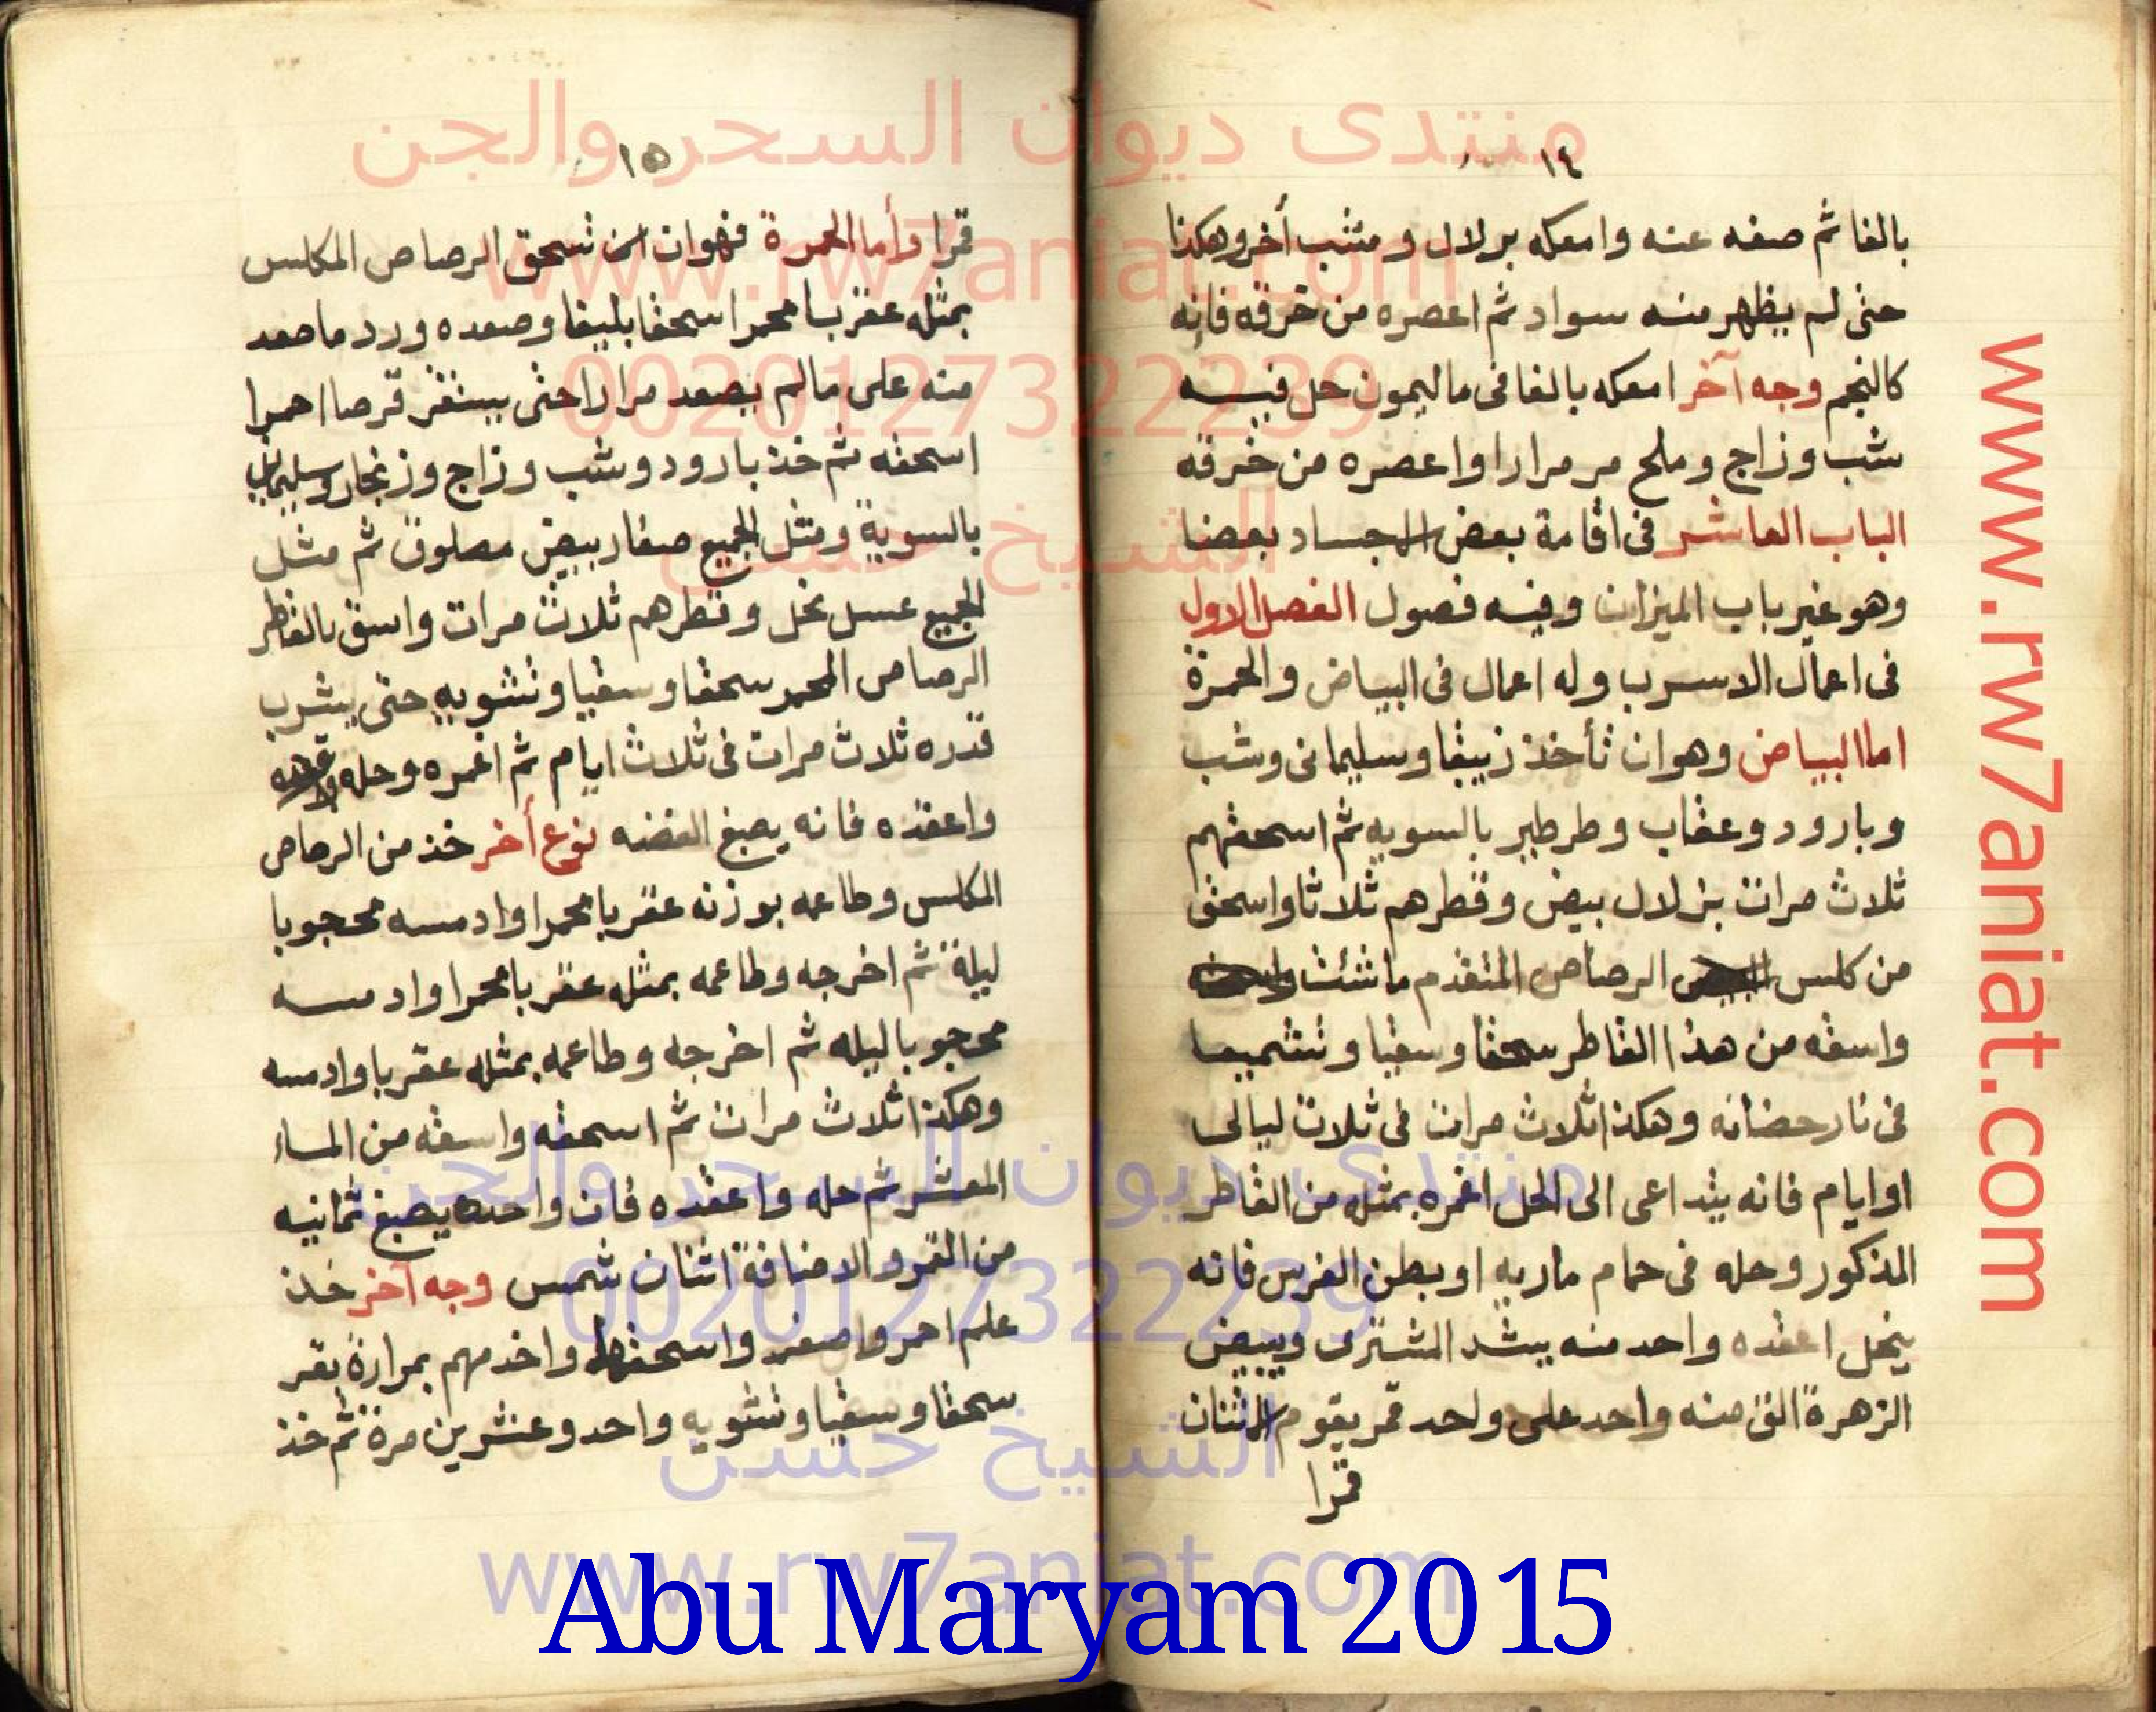 ١٤
بالغا ثم صفه عنه وامعكه بزلال وشب أخر وهكذا
حتى لم يظهر منه سواد ثم اعصره من خرقه فانه
كالنجم وجه آخر امعكه بالغا فى ماليمون حل فيه
شب وزاج وملح مر مرارا واعصره من خرقه
الباب العاشر فى اقامة بعض الاجساد بعضا
وهو غير باب الميزان وفيه فصول الفصل الاول
فى اعمال الاسرب وله اعمال فى البياض والحمرة
اما البياض وهوان تأخذ زيبقا وسليمانى وشب
وبارود وعقاب وطرطير بالسويه ثم اسحقهم
ثلاث مرات بزلال بيض وقطرهم ثلاثا واسحق
من كلس الرصاص المتقدم ما شئت
واسقه من هذا القاطر سحقا وسقيا وتشميعا
فى نار حضانه وهكذا ثلاث مرات فى ثلاث ليالى
او ايام فانه يتداعى الى الحل اغمره بمثله من القاطر
المذكور وحله فى حمام ماريه او بطن الفرس فانه
ينحل اعقده واحد منه يشد المشترى ويبيض
الزهرة الق منه واحد على واحد قمر يقوم الاثنان
قمرا
١٥
قمرا وأما الحمرة فهوان تسحق الرصاص المكلس
بمثله عقربا محمرا اسحقا بليغا وصعده ورد ما صعد
منه على مالم يصعد مرارا حتى يستقر قرصا احمرا
اسحقه ثم خذ بارود وشب وزاج وزنجار وسليمانى
بالسوية ومثل الجميع صفار بيض مصلوق ثم مثل
الجميع عسل نحل وقطرهم ثلاث مرات واسق بالقاطر
الرصاص المحمر سحقا وسقيا وتشويه حتى يشرب
قدره ثلاث مرات فى ثلاث ايام ثم اغمره وحله
واعقده فانه يصبغ الفضه نوع أخر خذ من الرصاص
المكلس وطاعمه بوزنه عقربا محمرا وادمسه محجوبا
ليلة ثم اخرجه وطاعمه بمثله عقربا محمرا وادمسه
محجوبا ليله ثم اخرجه وطاعمه بمثله عقربا وادمسه
وهكذا ثلاث مرات ثم اسحقه واسقه من الماء
المعشر ثم حله واعقده فان واحده يصبغ ثمانيه
من القمر والاضافة اثنان شمس وجه آخر خذ
علم احمر واصفر واسحقهما واخدمهم بمرارة بقر
سحقا وسقيا وتشويه واحد وعشرين مرة ثم خذ
منتدى ديوان السحر والجن
www.rw7aniat.com
00201273222239
الشيخ حسن
منتدى ديوان السحر والجن
00201273222239
الشيخ حسن
www.rw7aniat.com
www.rw7aniat.com
Abu Maryam 2015